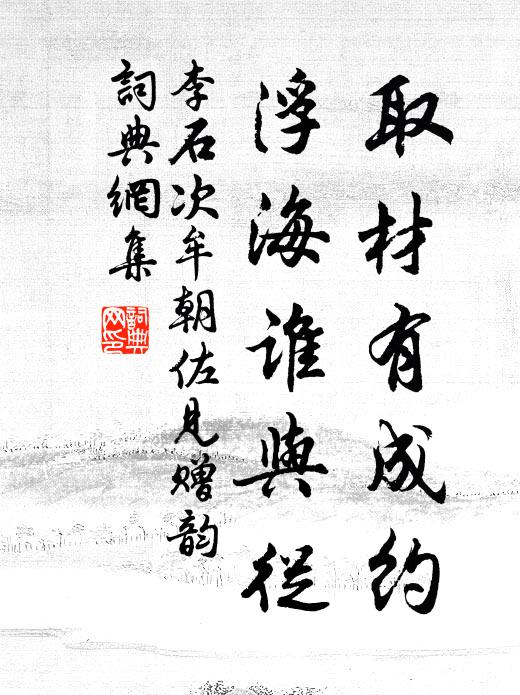 取材有成約
浮海誰與從
李石次牟朝佐見贈韵
詞典網集
詞典網印